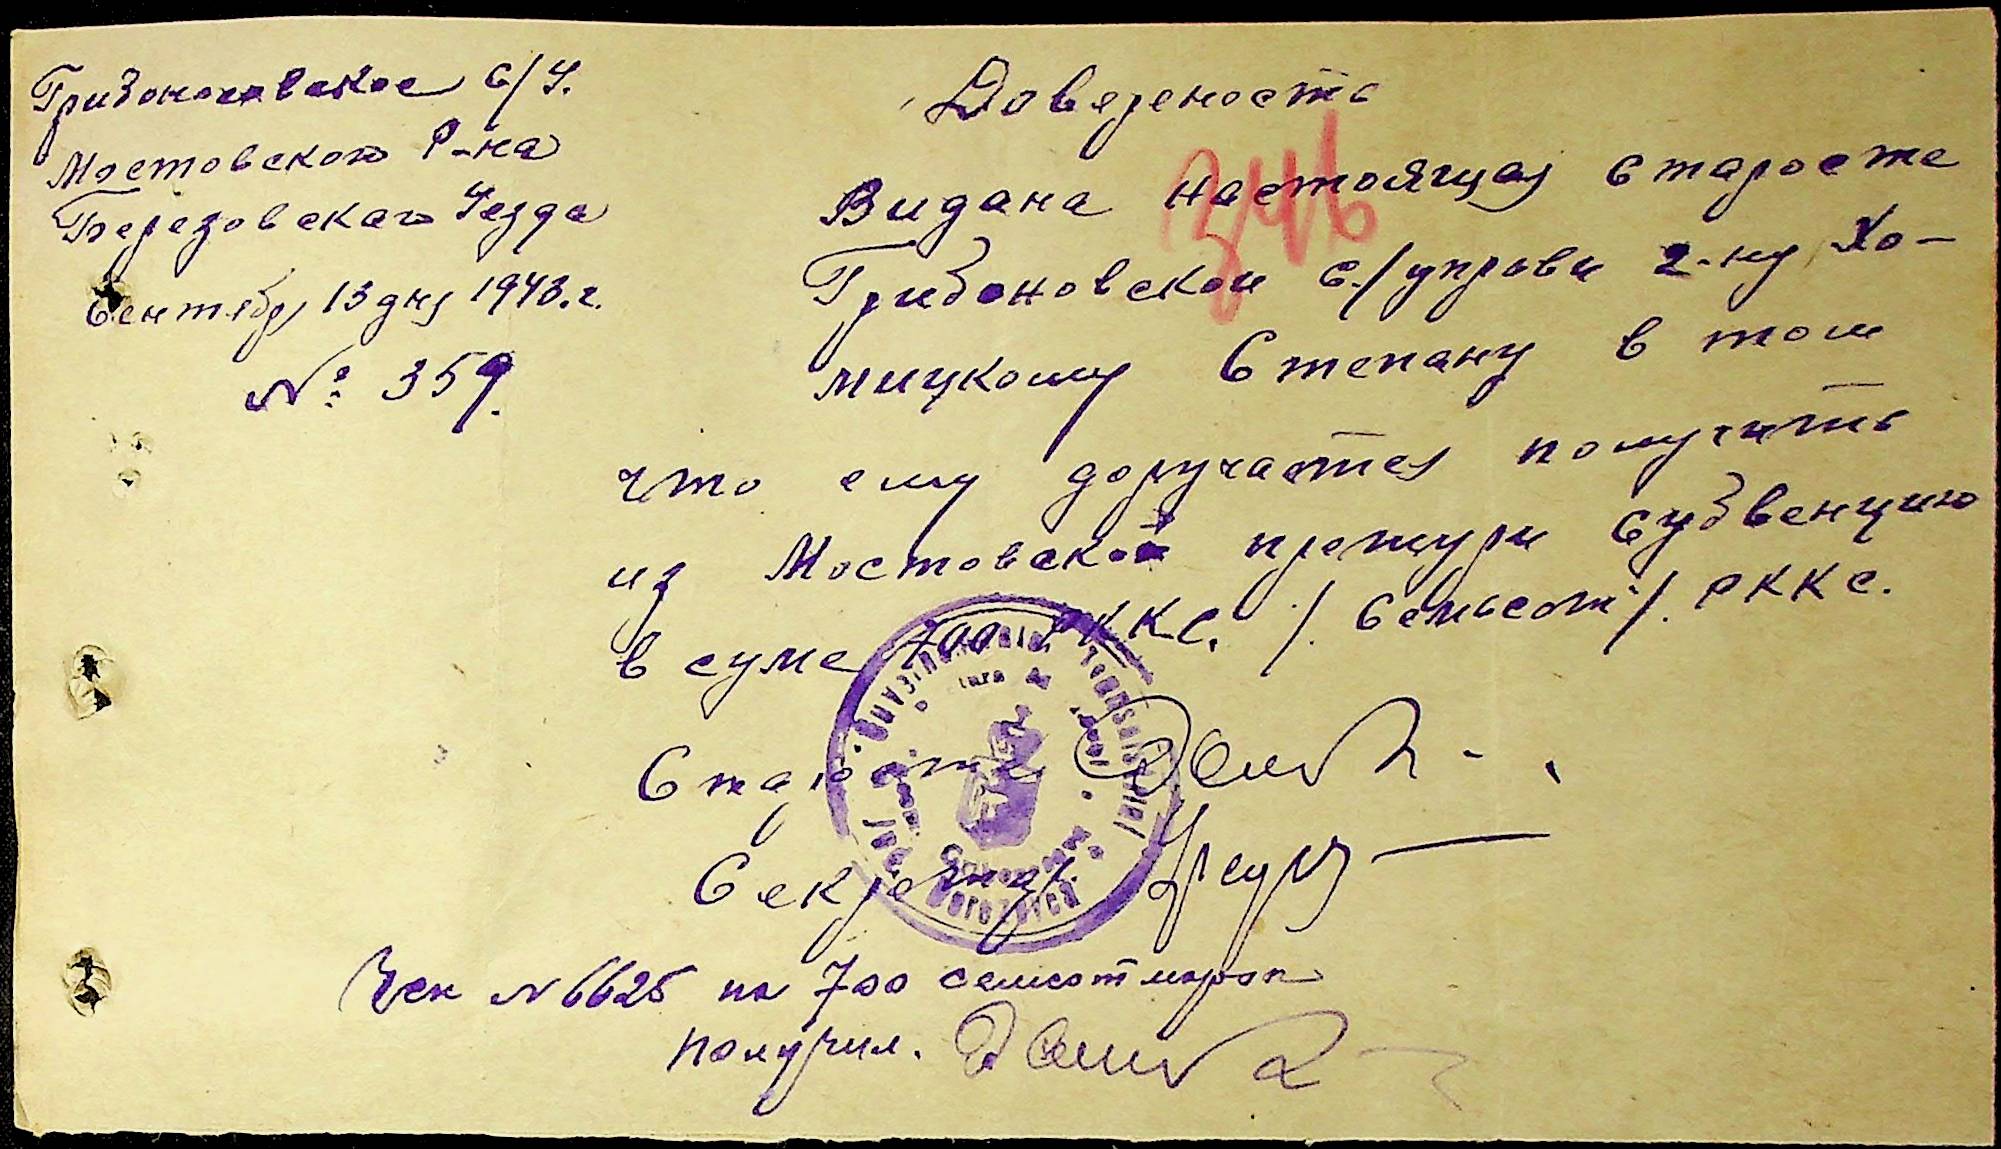 Грибоносовское С/У.
Мостовского Р-на
Березовскаго Уезда
Сентября 13 дня 1943.г.
№ 359.
Довереность
346
Видана настоящая старосте
Грибоновской с./управи г-ну Хо-
мицкому Степану в том
что ему доручается получить
из Мостовской претури субвенцию
в суме 700 РККС. /. Семьсот /. РККС.
Староста
Секретар.
Чек № 6625 на 700 семсот марок
получил.